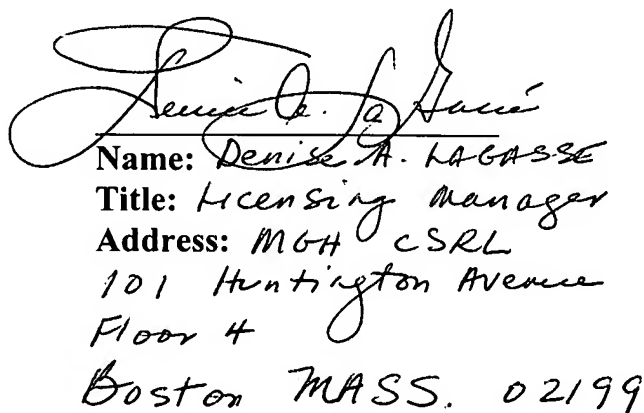 Denise A. La Gassé
Name: Denise A. LAGASSE
Title: Licensing Manager
Address: MGH CSRL
101 Huntington Avenue
Floor 4
Boston MASS. 02199